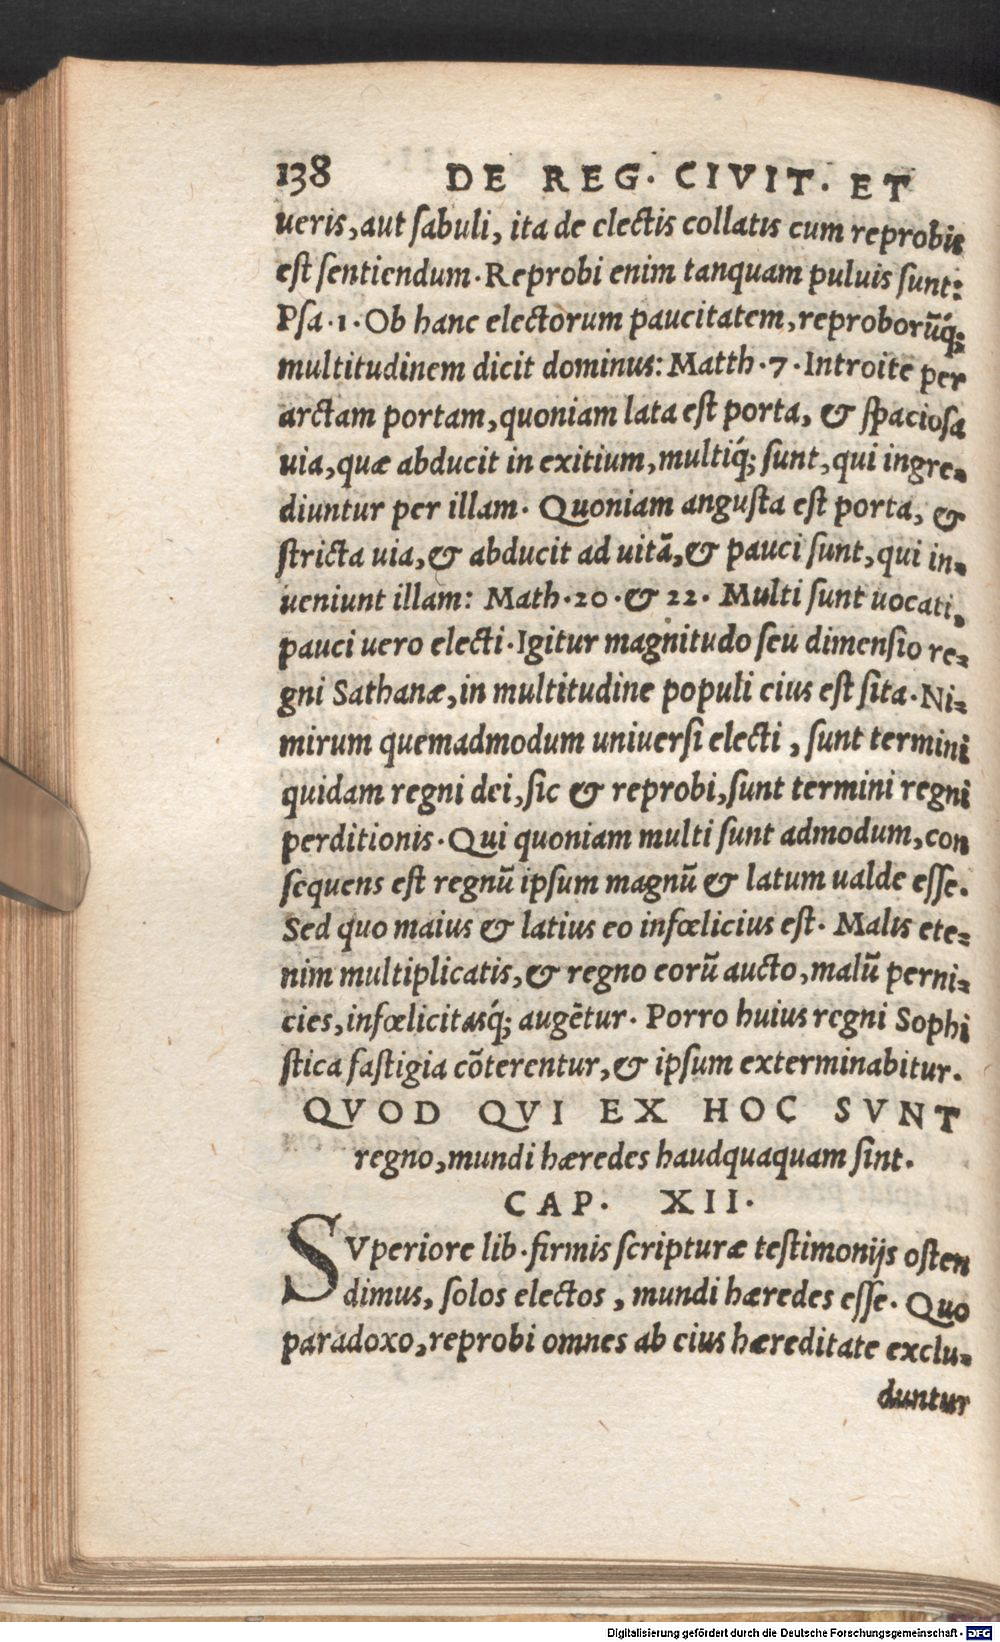 138 DE REG. CIVIT. ET
ueris, aut sabuli, ita de electis collatis cum reprobis
est sentiendum. Reprobi enim tanquam puluis sunt:
Psa. 1. Ob hanc electorum paucitatem, reproborūq́;
multitudinem dicit dominus: Matth. 7. Introite per
arctam portam, quoniam lata est porta, & spaciosa
uia, quæ abducit in exitium, multiq́; sunt, qui ingre-
diuntur per illam. Quoniam angusta est porta, &
stricta uia, & abducit ad uitã, & pauci sunt, qui in-
ueniunt illam: Math. 20. & 22. Multi sunt uocati,
pauci uero electi. Igitur magnitudo seu dimensio re-
gni Sathanæ, in multitudine populi eius est sita. Ni-
mirum quemadmodum uniuersi electi, sunt termini
quidam regni dei, sic & reprobi, sunt termini regni
perditionis. Qui quoniam multi sunt admodum, con
sequens est regnū ipsum magnū & latum ualde esse.
Sed quo maius & latius eo infœlicius est. Malis ete-
nim multiplicatis, & regno eorū aucto, malū perni-
cies, infœlicitasq́; augẽtur. Porro huius regni Sophi
stica fastigia cõterentur, & ipsum exterminabitur.
QVOD QVI EX HOC SVNT
regno, mundi hæredes haudquaquam sint.
CAP. XII.
SVperiore lib. firmis scripturæ testimonijs osten
dimus, solos electos, mundi hæredes esse. Quo
paradoxo, reprobi omnes ab eius hæreditate exclu-
duntur
Digitalisierung gefördert durch die Deutsche Forschungsgemeinschaft - DFG